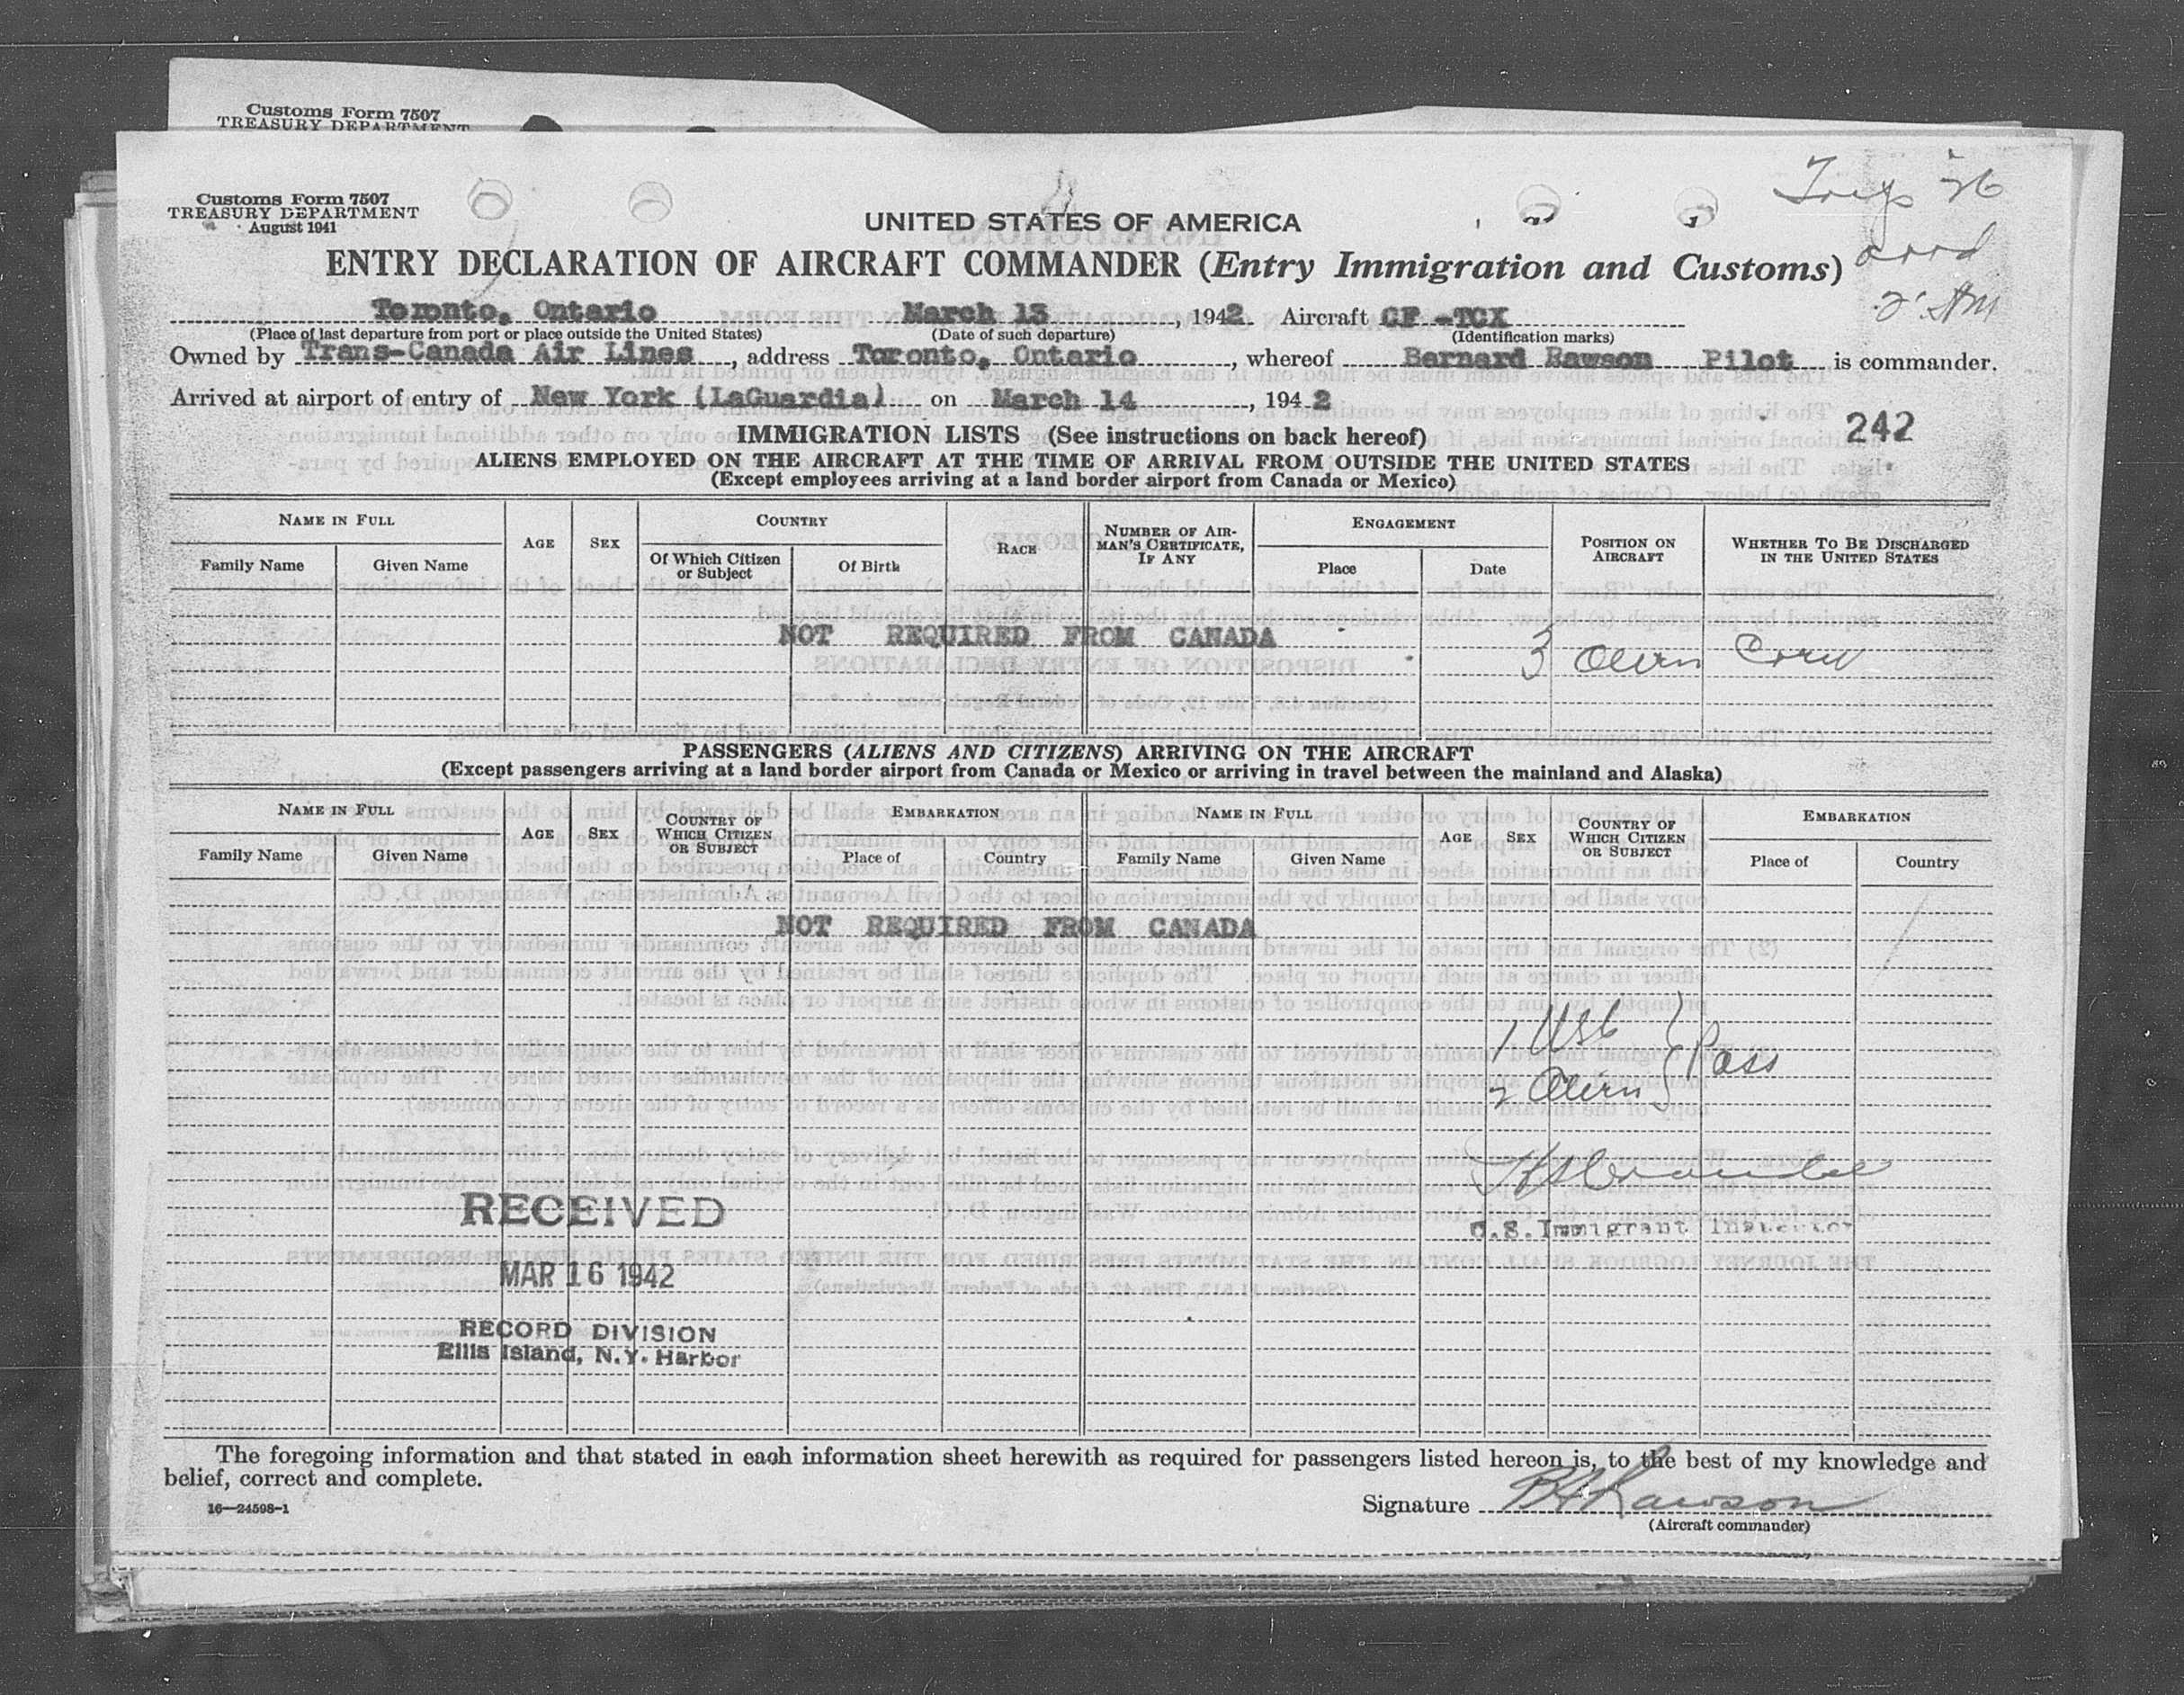 Customs Form 7507
TREASURY DEPARTMENT
Customs Form 7507
TREASURY DEPARTMENT
August 1941
Trip 26
arrd
2 AM
UNITED STATES OF AMERICA
ENTRY DECLARATION OF AIRCRAFT COMMANDER (Entry Immigration and Customs)
Toronto, Ontario March 13, 1942 Aircraft CF-TCX
(Place of last departure from port or place outside the United States) (Date of such departure) (Identification marks)
Owned by Trans-Canada Air Lines, address Toronto, Ontario, whereof Bernard Rawson Pilot is commander.
Arrived at airport of entry of New York (LaGuardia) on March 14, 1942
242
IMMIGRATION LISTS (See instructions on back hereof)
ALIENS EMPLOYED ON THE AIRCRAFT AT THE TIME OF ARRIVAL FROM OUTSIDE THE UNITED STATES
(Except employees arriving at a land border airport from Canada or Mexico)
NAME IN FULL AGE SEX COUNTRY RACE NUMBER OF AIRMAN'S CERTIFICATE, IF ANY ENGAGEMENT POSITION ON AIRCRAFT WHETHER TO BE DISCHARGED IN THE UNITED STATES
Family Name Given Name Of Which Citizen or Subject Of Birth Place Date
NOT REQUIRED FROM CANADA
3 Alien Crew
PASSENGERS (ALIENS AND CITIZENS) ARRIVING ON THE AIRCRAFT
(Except passengers arriving at a land border airport from Canada or Mexico or arriving in travel between the mainland and Alaska)
NAME IN FULL AGE SEX COUNTRY OF WHICH CITIZEN OR SUBJECT EMBARKATION NAME IN FULL AGE SEX COUNTRY OF WHICH CITIZEN OR SUBJECT EMBARKATION
Family Name Given Name Place of Country Family Name Given Name Place of Country
NOT REQUIRED FROM CANADA
1 USC
2 Alien
Pass
U.S. Immigrant Inspector
RECEIVED
MAR 16 1942
RECORD DIVISION
Ellis Island, N.Y. Harbor
The foregoing information and that stated in each information sheet herewith as required for passengers listed hereon is, to the best of my knowledge and
belief, correct and complete.
16—24598-1
Signature B H Rawson
(Aircraft commander)